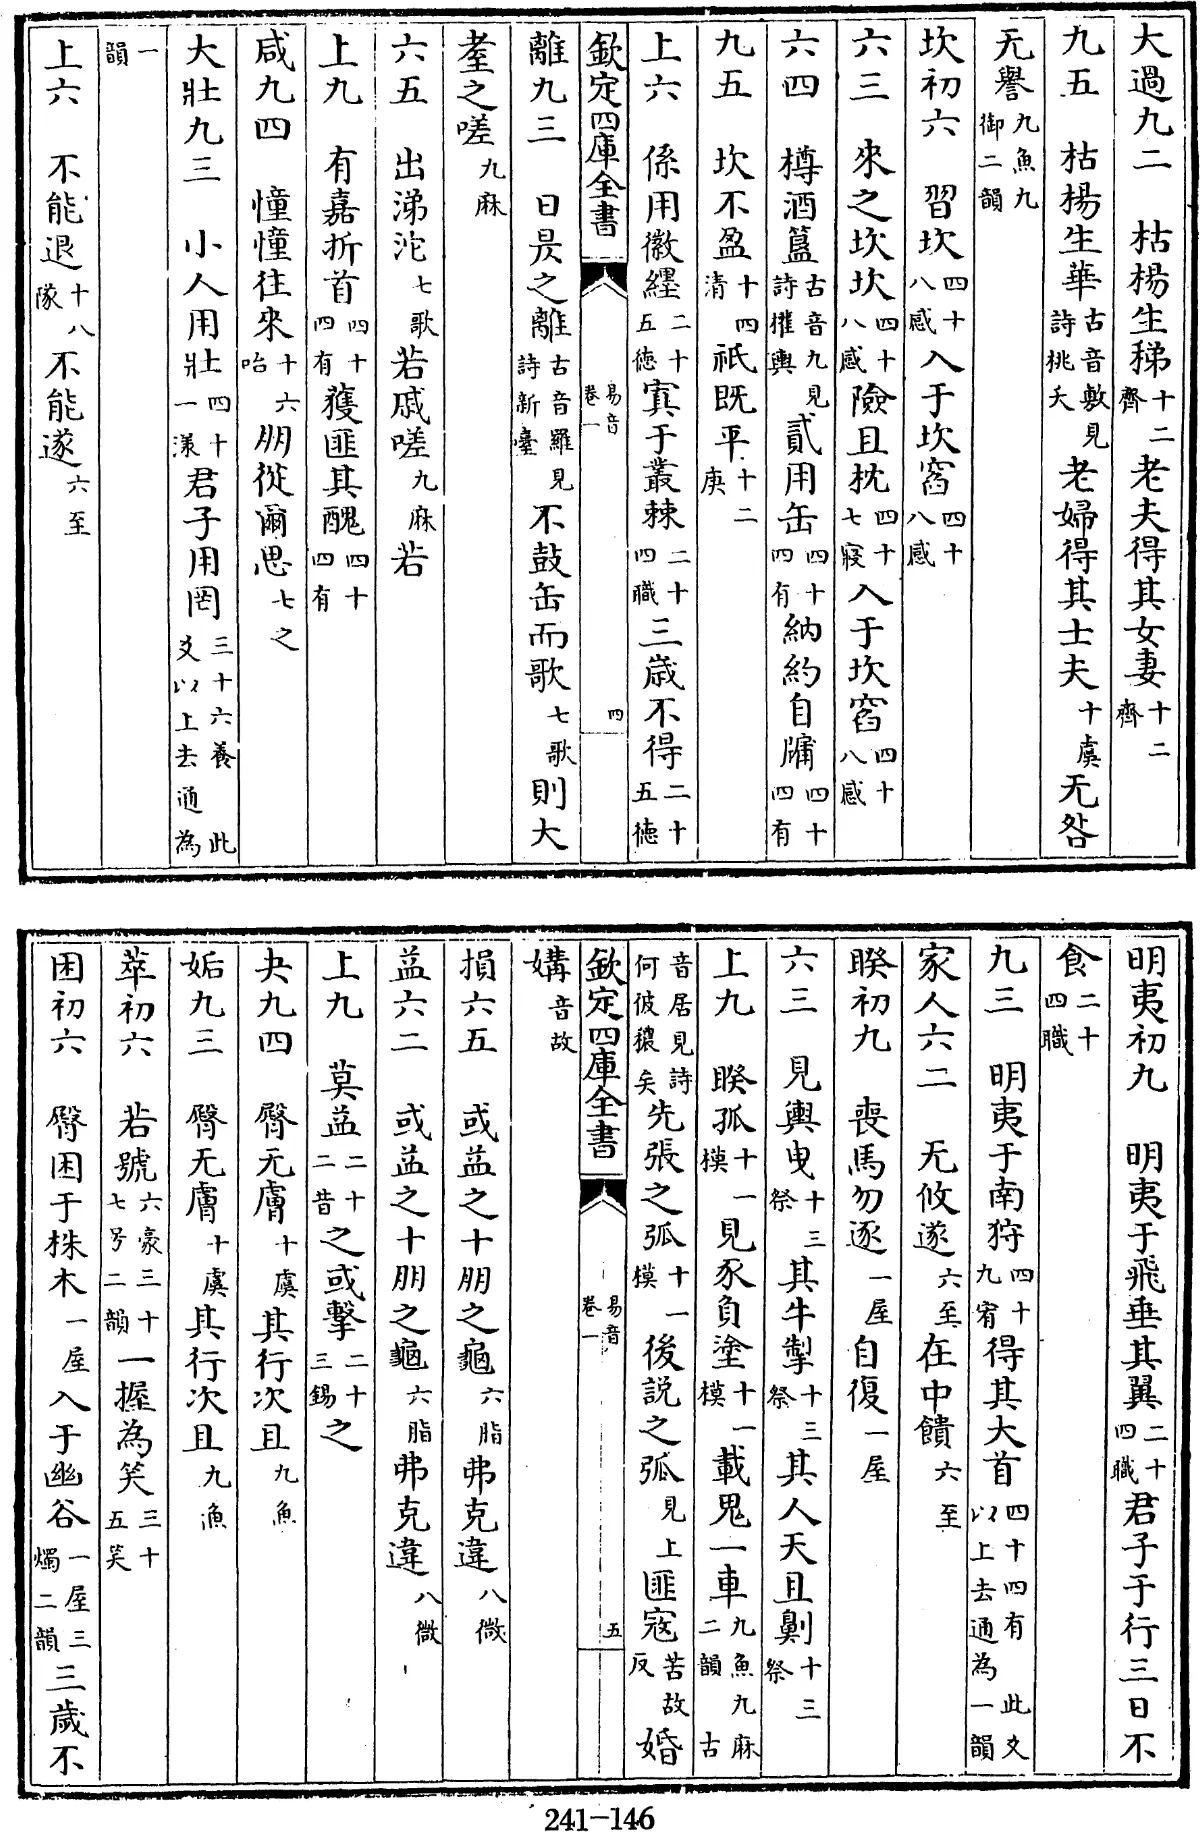 大過九二　枯楊生稊十二齊老夫得其女妻十二齊
九五　枯楊生華古音敷見詩桃夭老婦得其士夫十虞无咎
无譽九魚九御二韻
坎初六　習坎四十八感入于坎窞四十八感
六三　來之坎坎四十八感險且枕四十七寑入于坎窞四十八感
六四　樽酒簋古音九見詩權輿貳用缶四十四有納約自牖四十四有
九五　坎不盈十四清祇既平十二庚
上六　係用徽纆二十五徳寘于叢棘二十四職三歳不得二十五徳
欽定四庫全書　易音卷一　四
離九三　日昃之離古音羅見詩新臺不鼓缶而歌七歌則大
耋之嗟九麻
六五　出涕沱七歌若戚嗟九麻若
上九　有嘉折首四十四有獲匪其醜四十四有
咸九四　憧憧往來十六咍朋從爾思七之
大壯九三　小人用壯四十一漾君子用罔三十六養　此爻以上去通為
一韻
上六　不能退十八隊不能遂六至
明夷初九　明夷于飛垂其翼二十四職君子于行三日不
食二十四職
九三　明夷于南狩四十九宥得其大首四十四有　此爻以上去通為一韻
家人六二　无攸遂六至在中饋六至
睽初九　喪馬勿逐一屋自復一屋
六三　見輿曳十三祭其牛掣十三祭其人天且劓十三祭
上九　睽孤十一模見豕負塗十一模載鬼一車九魚九麻二韻　古
音居見詩何彼穠矣先張之弧十一模後説之弧見上匪寇苦故反婚
欽定四庫全書　易音卷一　五
媾音故
損六五　或益之十朋之龜六脂弗克違八微
益六二　或益之十朋之龜六脂弗克違八微
上九　莫益二十二昔之或擊二十三錫之
夬九四　臀无膚十虞其行次且九魚
姤九三　臀无膚十虞其行次且九漁
萃初六　若號六豪三十七号二韻一握為笑三十五笑
困初六　臀困于株木一屋入于幽谷一屋三燭二韻三歲不
241-146